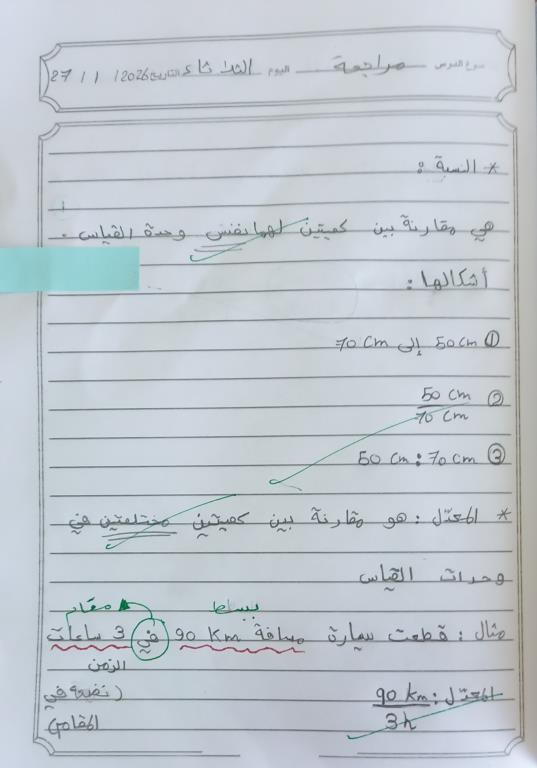 موضوع الدرس مراجعة اليوم الثلاثاء التاريخ 27 / 1 / 2026
* النسبة :
هي مقارنة بين كميتين لهما نفس وحدة القياس .
أشكالها :
① 50 cm إلى 70 cm
② 50 cm
70 cm
③ 50 cm : 70 cm
* المعدّل : هو مقارنة بين كميتين مختلفتين في
وحدات القياس
بسط مقام
مثال : قطعت سيارة مسافة 90 km في 3 ساعات
الزمن
المعدّل : 90 km (نضعه في
3h المقام)